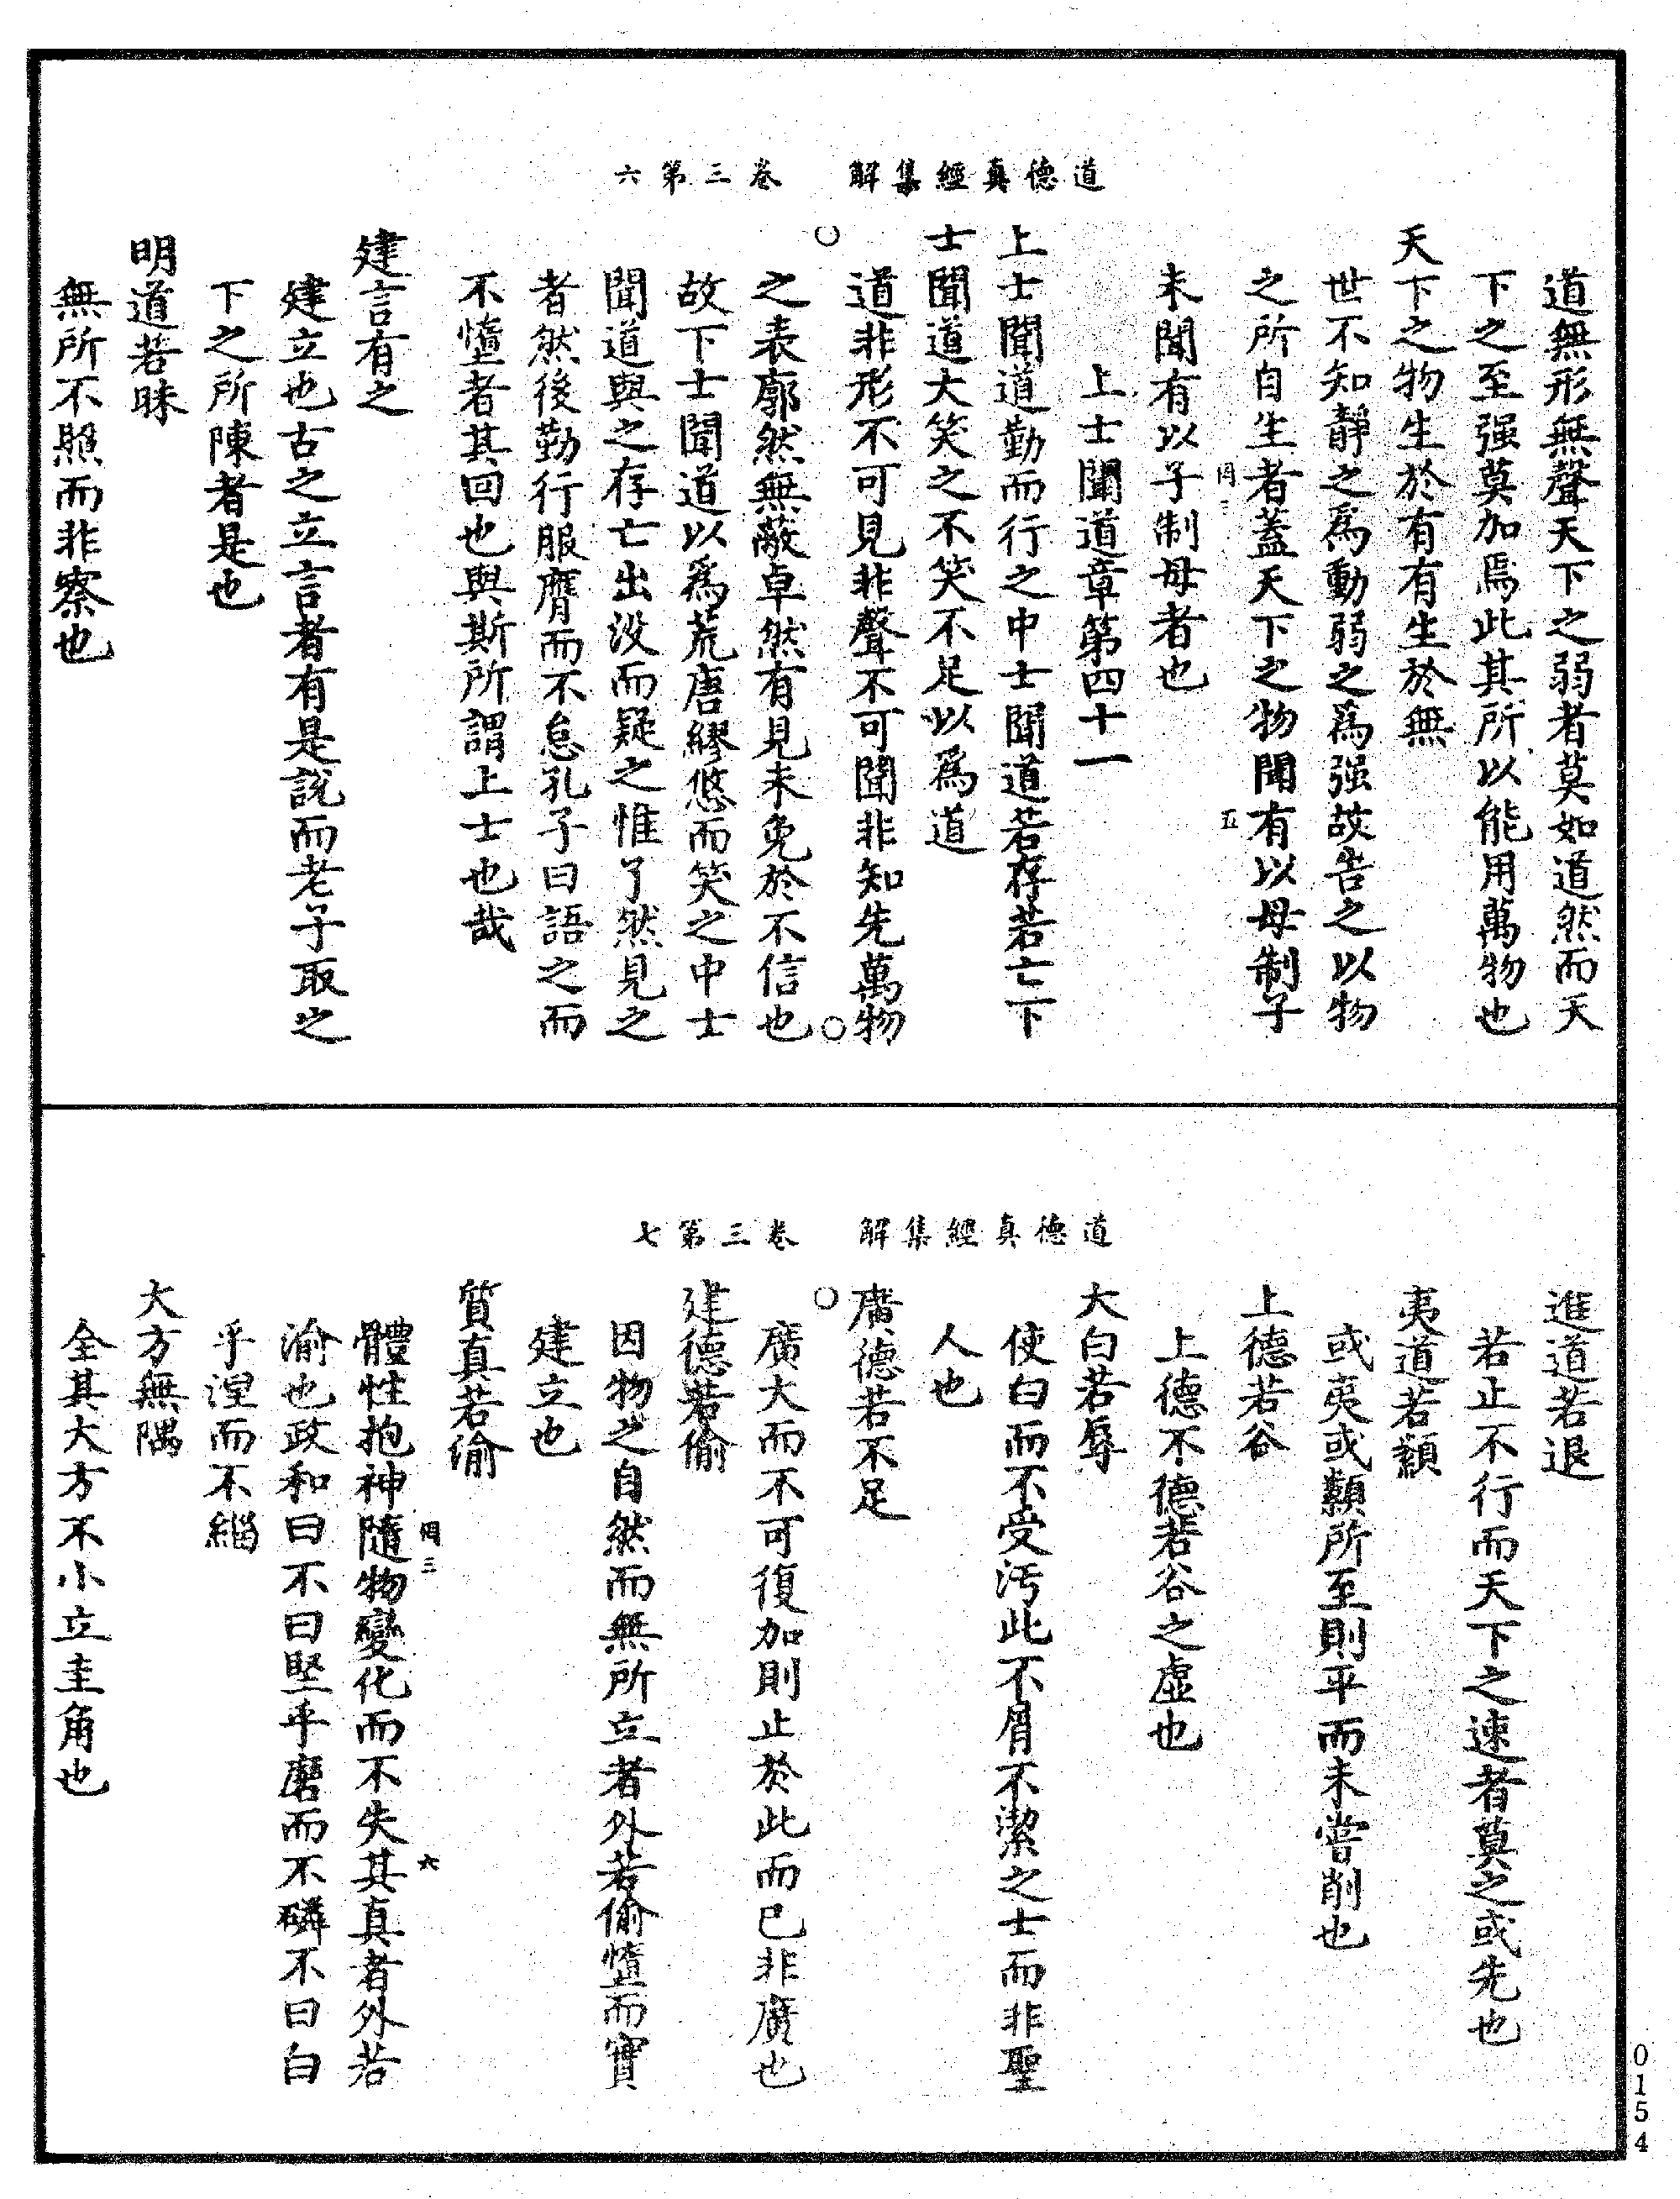 道德真經集解　卷三第六
道無形無聲天下之弱者莫如道然而天
下之至强莫加焉此其所以能用萬物也
天下之物生於有有生於無
世不知靜之爲動弱之爲强故告之以物
之所自生者蓋天下之物聞有以母制子
罔三　五
未聞有以子制母者也
上士聞道章第四十一
上士聞道勤而行之中士聞道若存若亡下
士聞道大笑之不笑不足以爲道
道非形不可見非聲不可聞非知先萬物
○　○
之表廓然無蔽卓然有見未免於不信也
故下士聞道以爲荒唐繆悠而笑之中士
聞道與之存亡出没而疑之惟了然見之
者然後勤行服膺而不怠孔子曰語之而
不憻者其回也與斯所謂上士也哉
建言有之
建立也古之立言者有是說而老子取之
下之所陳者是也
明道若昧
無所不照而非察也
道德真經集解　卷三第七
進道若退
若止不行而天下之速者莫之或先也
夷道若纇
或夷或纇所至則平而未嘗削也
上德若谷
上德不德若谷之虛也
大白若辱
使白而不受汚此不屑不潔之士而非聖
人也
廣德若不足
○
廣大而不可復加則止於此而已非廣也
建德若偷
因物之自然而無所立者外若偷憻而實
建立也
質真若渝
體性抱神隨物變化而不失其真者外若
罔三　六
渝也政和曰不曰堅乎磨而不磷不曰白
乎涅而不緇
大方無隅
全其大方不小立圭角也
0154